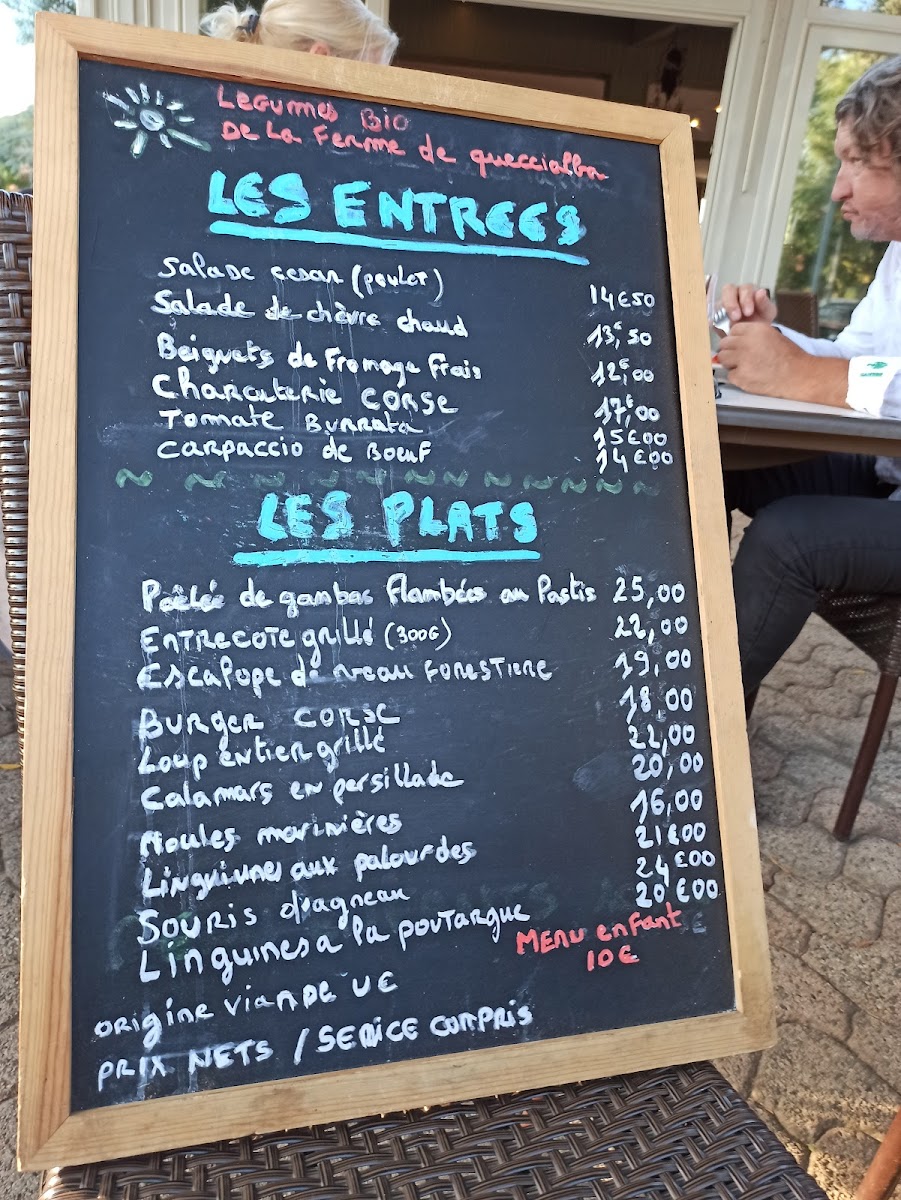 LEGUMES BIO
DE LA FERME de queccialba
LES ENTREES
Salade cesar (poulet) 14€50
Salade de chèvre chaud 13€,50
Beignets de Fromage Frais 12€,00
Charcuterie CORSE 17€,00
TOMATE BURRATA 15€00
carpaccio de BOEUF 14€00
LES PLATS
Poêlée de gambas flambées au Pastis 25,00
ENTRECOTE grillé (300G) 22,00
Escalope de veau FORESTIERE 19,00
BURGER CORSE 18,00
Loup entier grillé 22,00
Calamars en persillade 20,00
Moules marinières 16,00
Linguines aux palourdes 21€00
SOURIS d'agneau 24€00
Linguines a la pouTargue 20€00
MENU enfant
10€
ORigine VIANDE UE
PRIX NETS / SERICE COMPRIS